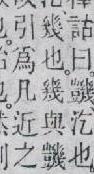 詁曰。𧰙汔也
幾也。幾與𧰙
引爲凡近之